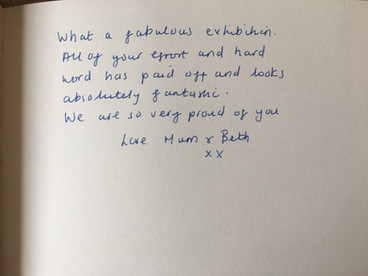 What a fabulous exhibition.
All of your effort and hard
word has paid off and looks
absolutely fantastic.
We are so very proud of you
Love Mum & Beth
xx